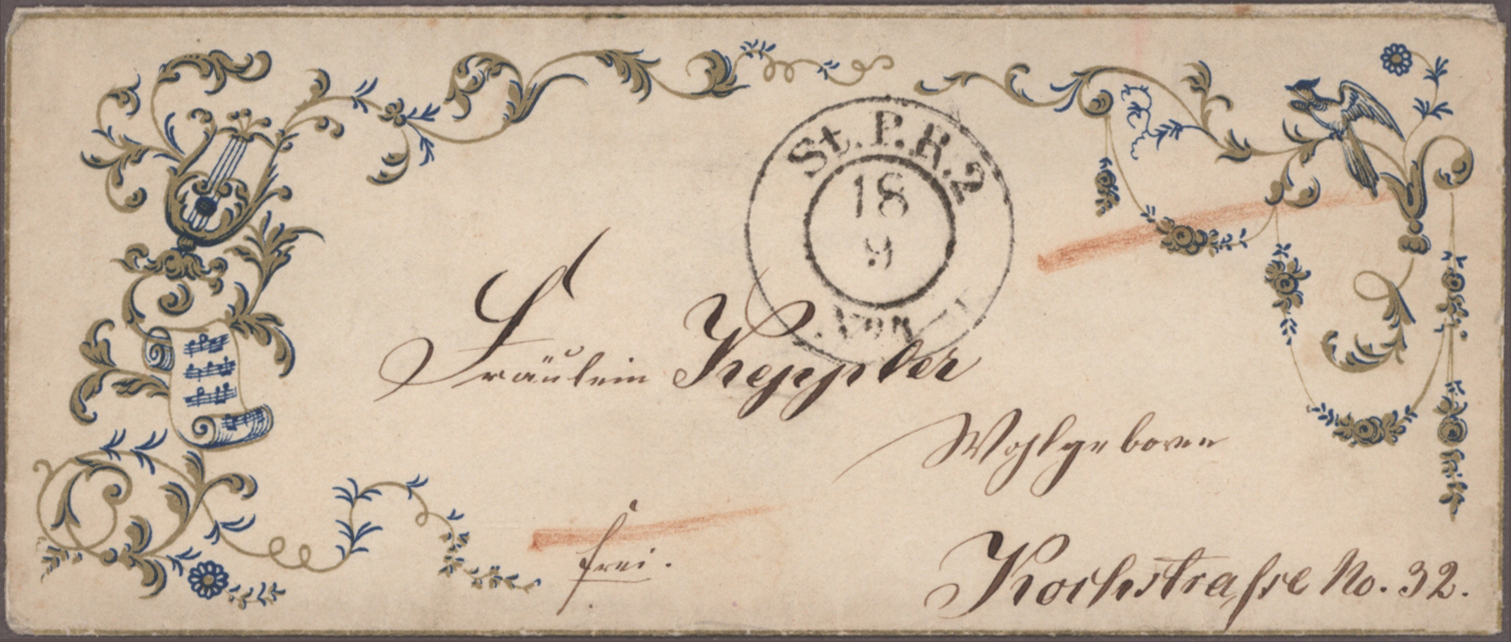 St. P. R. 2
18
9
Fräulein Keppler
Wohlgeboren
frei.
Kochstraße No. 32.